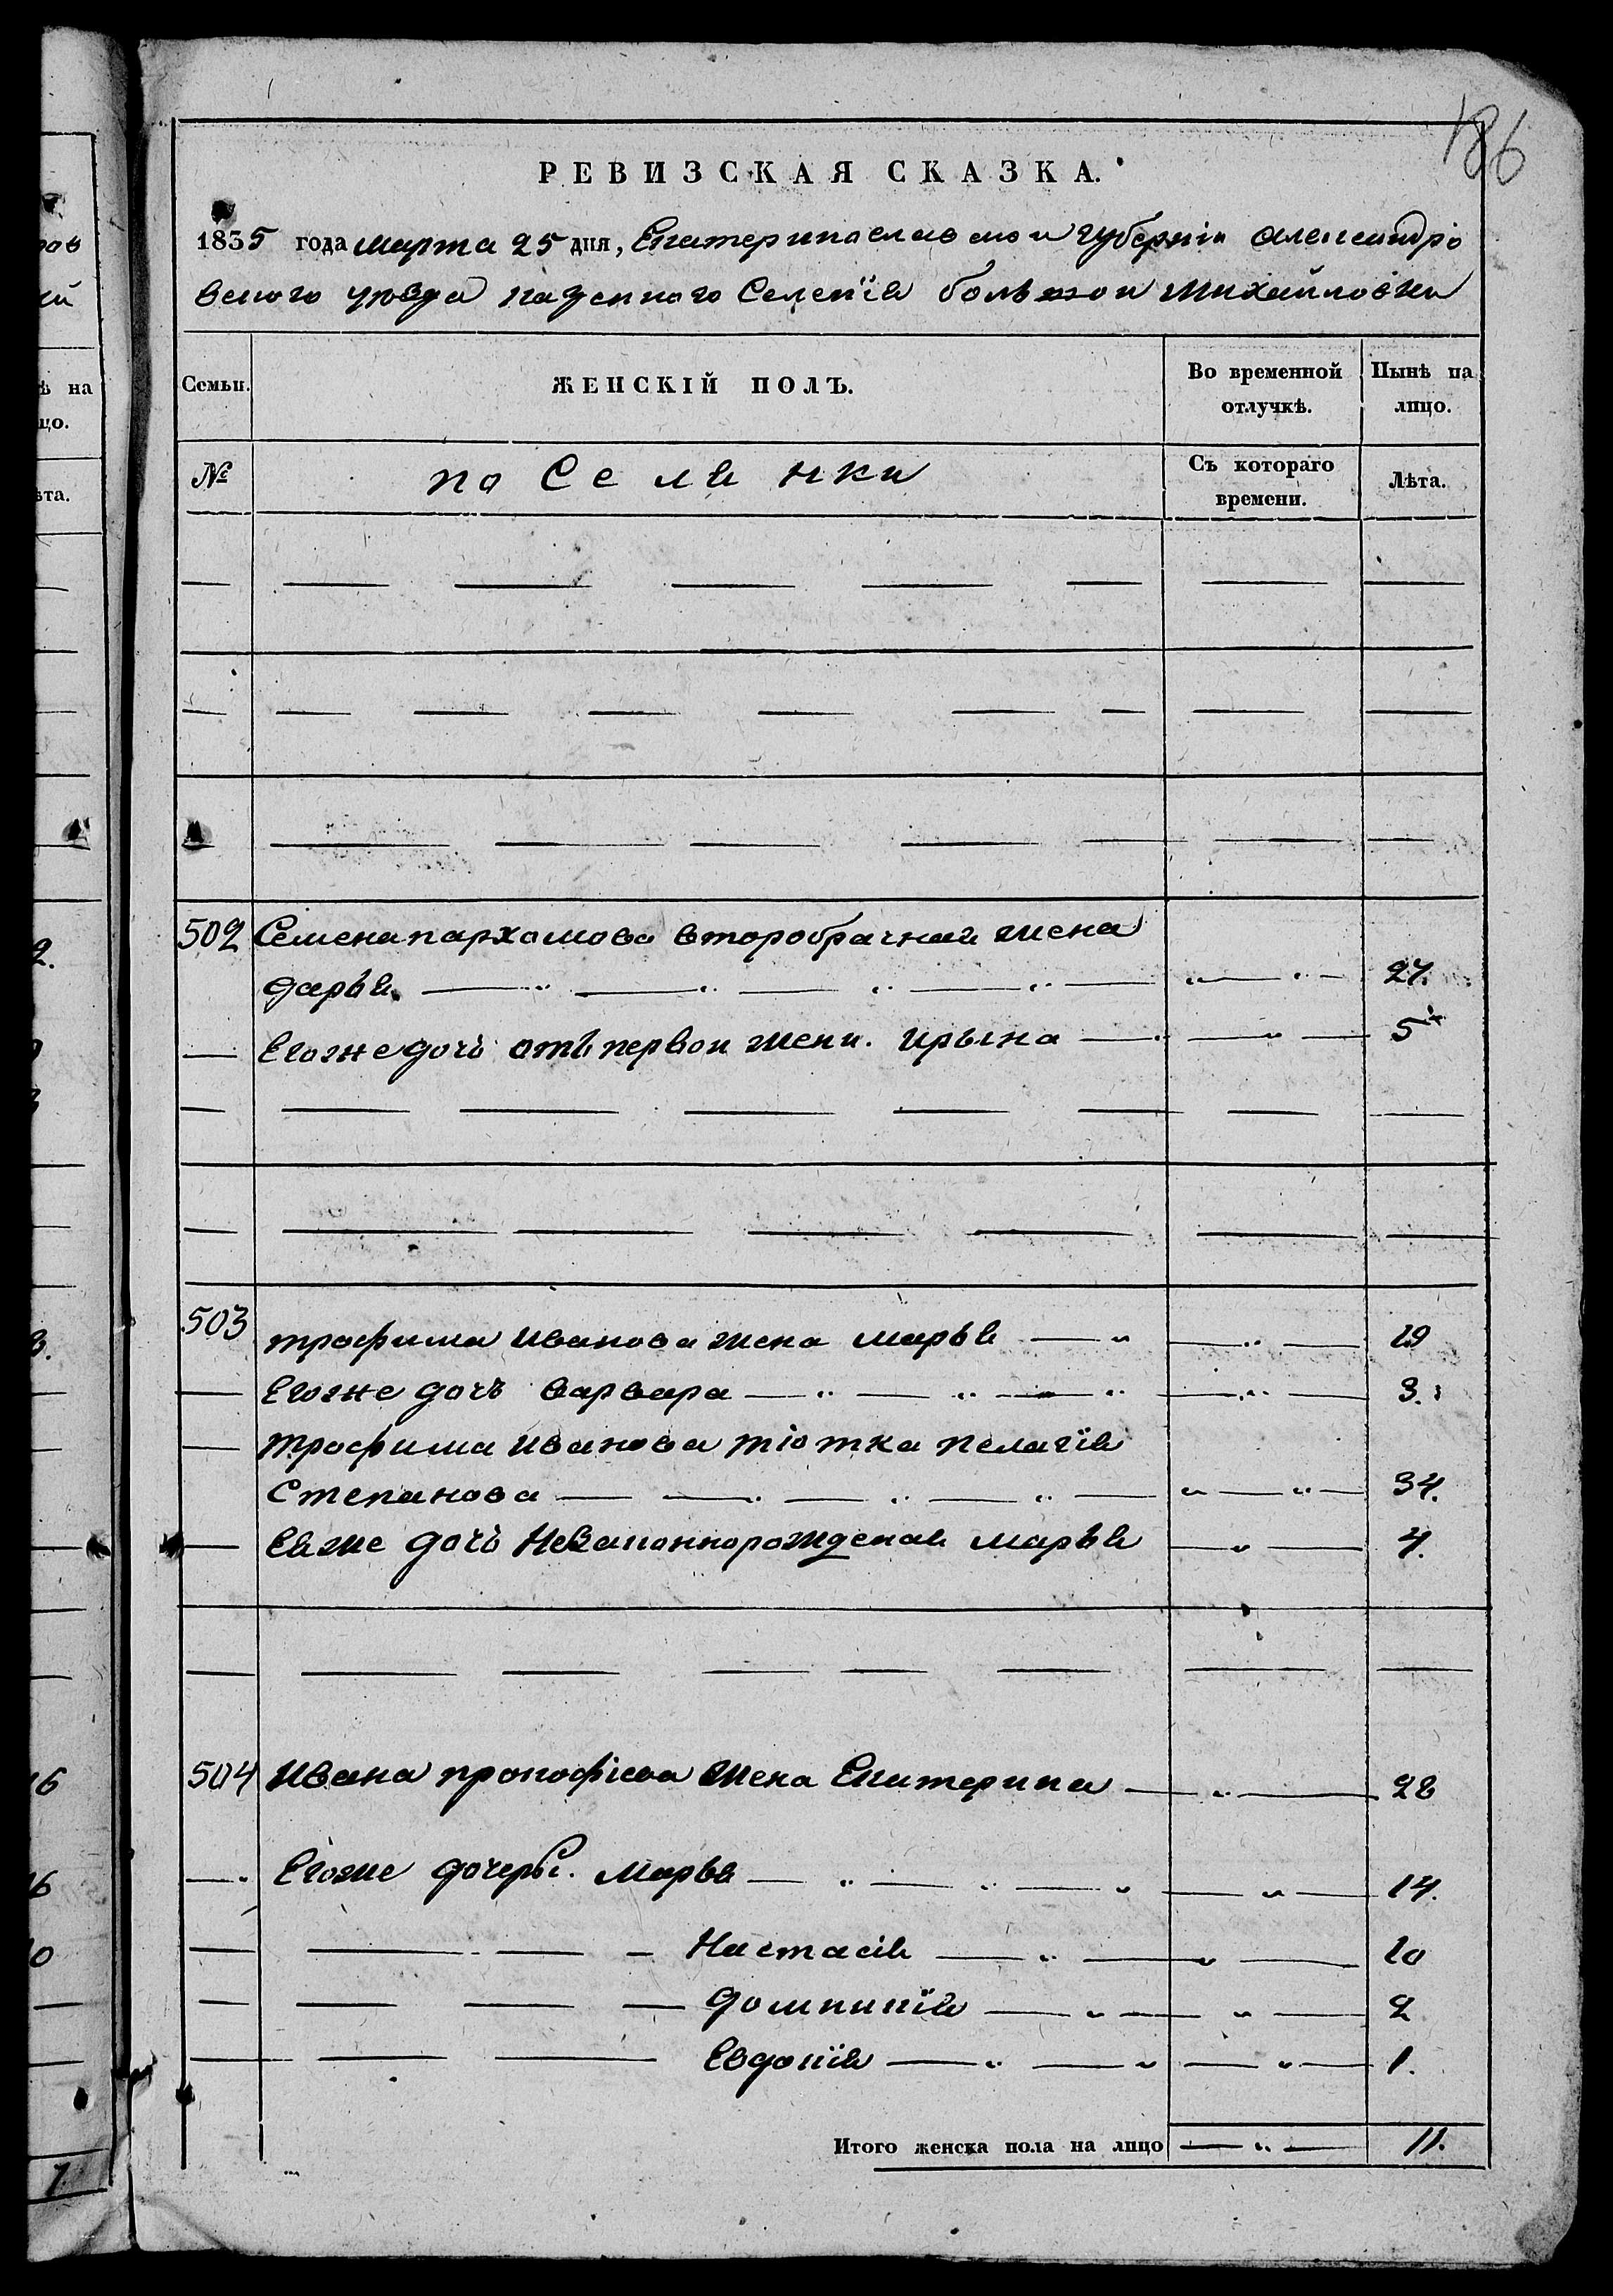 186
РЕВИЗСКАЯ СКАЗКА.
1835 года марта 25 дня, Екатеринославской губернiи Александро
вского уѣзда казенного Селенiя большой михайловки
Семьи. ЖЕНСКІЙ ПОЛЪ. Во временной отлучкѣ. Нынѣ на лицо.
№ по Се ля нки Съ котораго времени. Лѣта.
502 Семена пархомова второбрачная жена
дарья 27.
Егоже дочь отъ первои жени. ирына 5
503 трофима иванова жена марья 19
Егоже дочь варвара 3.
трофима иванова тiотка пелагiя
Степанова 34.
Еяже дочь незаконнорожденая марья 4.
504 ивана прокофiева жена Екатерина 28
Егоже дочеры. марья 14.
Настасiя 10
домникiя 2
Евдокiя 1.
Итого женска пола на лицо 11.